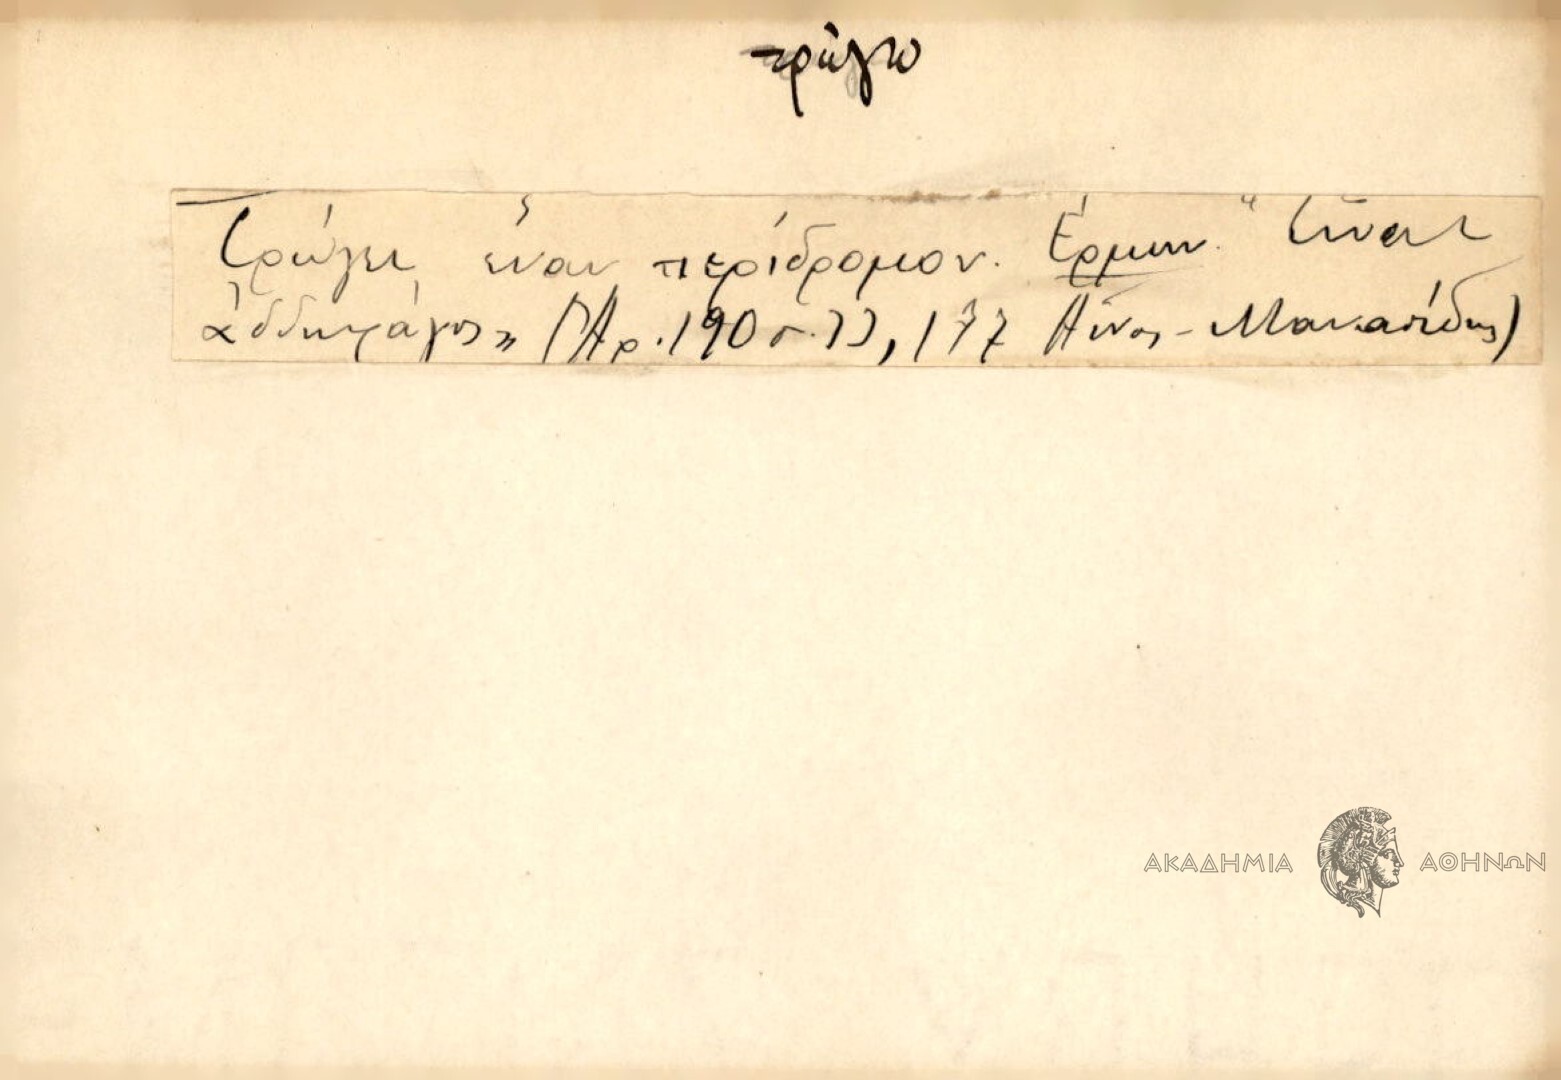 τρώγω
Τρώγει έναν περίδρομον. Ερμην. "Είναι
ἀδδηφάγος» (Ἀρ. 190 σ. 177 Αἶνος - Μανασείδης)
ΑΚΑΔΗΜΙΑ ΑΘΗΝΩΝ